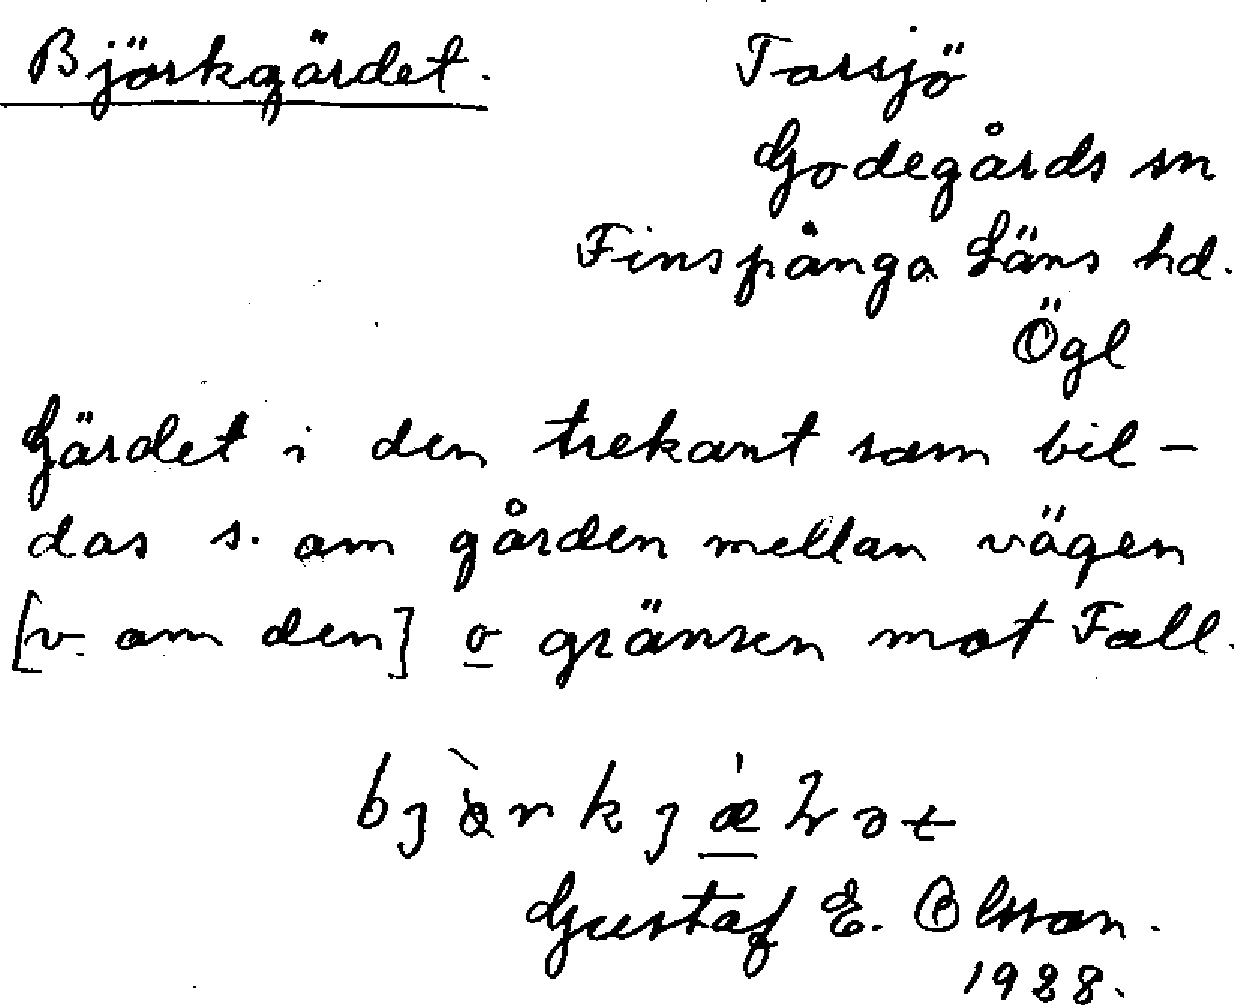 Björkgärdet.
Torsjö
Godegårds sn
Finspånga Läns hd.
Ögl
Gärdet i den trekant som bil-
das s. om gården mellan vägen
[v. om den] o gränsen mot Fall.
Gustaf E. Olsson.
1928.